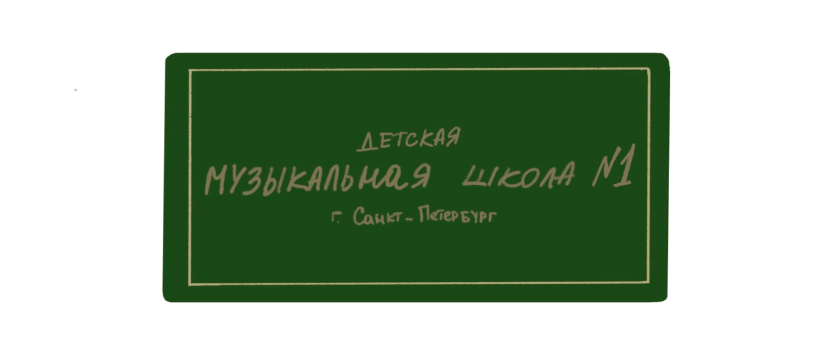 ДЕТСКАЯ
МУЗЫКАЛЬНАЯ ШКОЛА №1
г. Санкт-Петербург